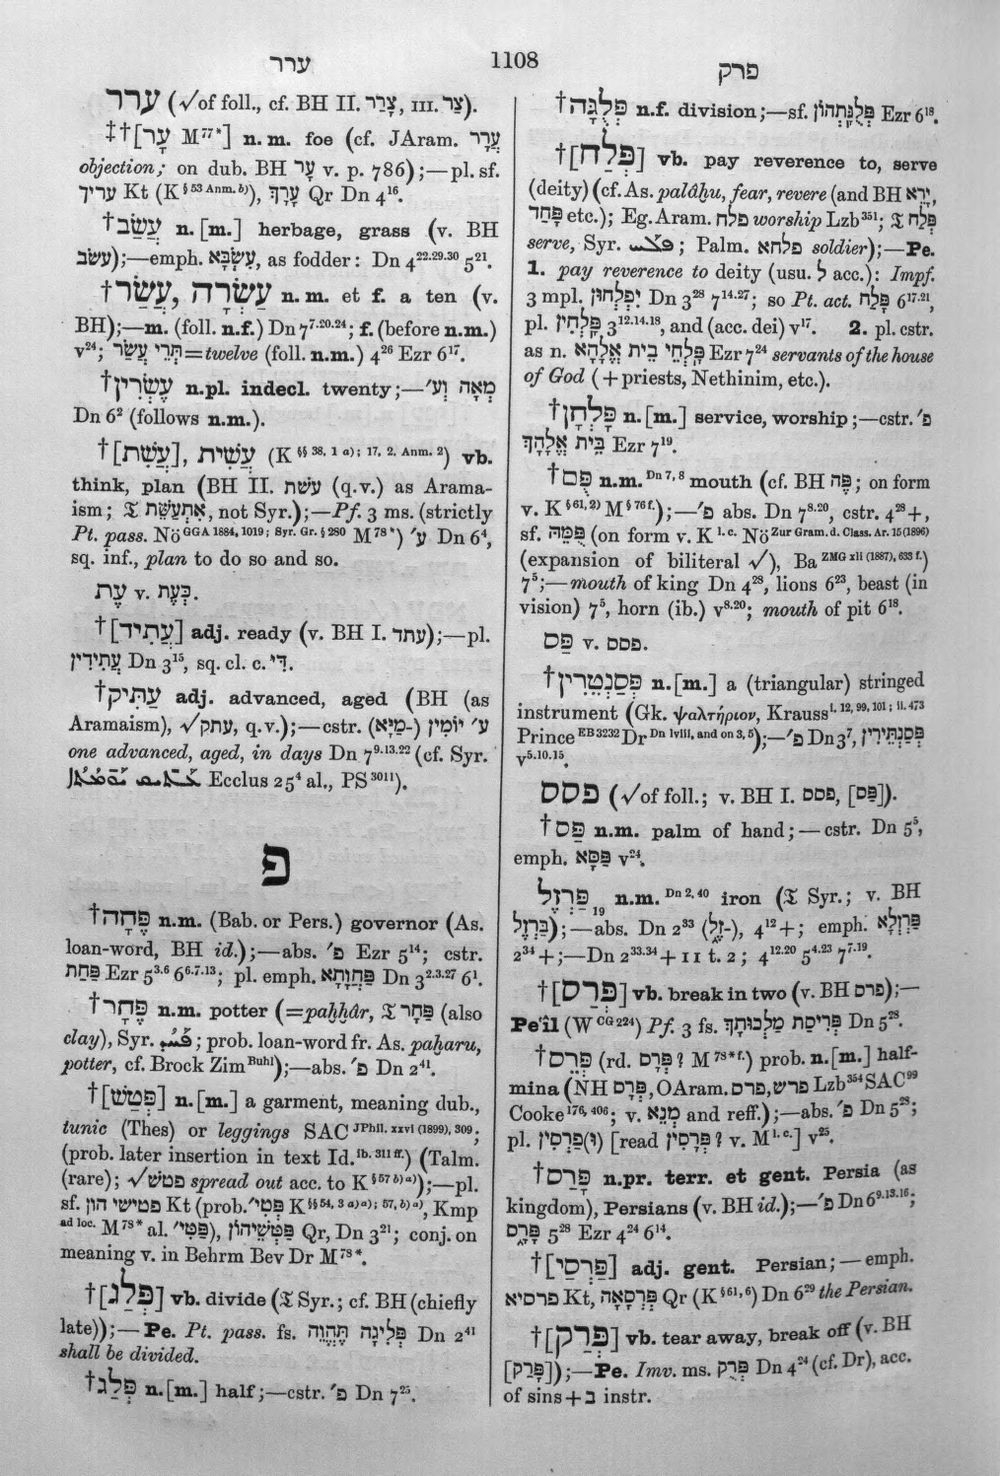 ערר
1108
פרק
ערר (√of foll., cf. BH II. צָרַר, III. צַר).
‡†[עָר M⁷⁷*] n.m. foe (cf. JAram. עֲרָר
objection; on dub. BH עָר v. p. 786);—pl. sf.
עריך Kt (K§ 53 Anm. b)), עָרָךְ Qr Dn 4¹⁶.
†עֲשַׂב n.[m.] herbage, grass (v. BH
עשׂב);—emph. עִשְׂבָּא, as fodder: Dn 4²²·²⁹·³⁰ 5²¹.
†עֲשַׂר, עַשְׂרָה n.m. et f. a ten (v.
BH);—m. (foll. n.f.) Dn 7⁷·²⁰·²⁴; f. (before n.m.)
v²⁴; תְּרֵי עֲשַׂר=twelve (foll. n.m.) 4²⁶ Ezr 6¹⁷.
†עֶשְׂרִין n.pl. indecl. twenty;—מְאָה וְע׳
Dn 6² (follows n.m.).
†[עֲשֵׁת], עֲשִׁית (K§§ 38, 1 a); 17, 2, Anm. 2) vb.
think, plan (BH II. עשׁת (q.v.) as Arama-
ism; 𝔗 אִתְעַשֵּׁת, not Syr.);—Pf. 3 ms. (strictly
Pt. pass. Nö GGA 1884, 1019; Syr. Gr. § 280 M⁷⁸*) ע׳ Dn 6⁴,
sq. inf., plan to do so and so.
עֶת v. כְּעֶת.
†[עֲתִיד] adj. ready (v. BH I. עתד);—pl.
עֲתִידִין Dn 3¹⁵, sq. cl. c. דִּי.
†עַתִּיק adj. advanced, aged (BH (as
Aramaism), √עתק, q.v.);—cstr. ע׳ יוֹמִין (-מַיָּא)
one advanced, aged, in days Dn 7⁹·¹³·²² (cf. Syr.
Ecclus 25⁴ al., PS³⁰¹¹).
פ
†פֶּחָה n.m. (Bab. or Pers.) governor (As.
loan-word, BH id.);—abs. פ׳ Ezr 5¹⁴; cstr.
פַּחַת Ezr 5³·⁶ 6⁶·⁷·¹³; pl. emph. פַּחֲוָתָא Dn 3²·³·²⁷ 6¹.
†פֶּחָר n.m. potter (=paḫḫâr, 𝔗 פַּחָר (also
clay), Syr. ; prob. loan-word fr. As. paḫaru,
potter, cf. Brock Zim Buhl);—abs. פ׳ Dn 2⁴¹.
†[פְּטַשׁ] n.[m.] a garment, meaning dub.,
tunic (Thes) or leggings SAC JPhil. xxvi (1899), 309;
(prob. later insertion in text Id. ib. 311 ff.) (Talm.
(rare); √פטשׁ spread out acc. to K§57 b) a));—pl.
sf. פטישי הון Kt (prob. פְּטִי׳ K§§54, 3 a) a); 57, b) a), Kmp
ad loc. M⁷⁸* al. פַּטִּי׳), פַּטְּשֵׁיהוֹן Qr, Dn 3²¹; conj. on
meaning v. in Behrm Bev Dr M⁷⁸*.
†[פְּלַג] vb. divide (𝔗 Syr.; cf. BH (chiefly
late));—Pe. Pt. pass. fs. פְּלִיגָה תֶּהֱוֵה Dn 2⁴¹
shall be divided.
†פְּלַג n.[m.] half;—cstr. פ׳ Dn 7²⁵.
†פְּלֻגָּה n.f. division;—sf. פְּלֻגָּתְהוֹן Ezr 6¹⁸.
†[פְּלַח] vb. pay reverence to, serve
(deity) (cf. As. palâḫu, fear, revere (and BH יָרֵא,
פַּחַד etc.); Eg. Aram. פלח worship Lzb³⁵¹; 𝔗 פְּלַח
serve, Syr. ܦܠܚ; Palm. פלחא soldier);—Pe.
1. pay reverence to deity (usu. לְ acc.): Impf.
3 mpl. יִפְלְחוּן Dn 3²⁸ 7¹⁴·²⁷; so Pt. act. פָּלַח 6¹⁷·²¹,
pl. פָּלְחִין 3¹²·¹⁴·¹⁸, and (acc. dei) v¹⁷. 2. pl. cstr.
as n. פָּלְחֵי בֵּית אֱלָהָא Ezr 7²⁴ servants of the house
of God (+priests, Nethinim, etc.).
†פָּלְחָן n.[m.] service, worship;—cstr. פ׳
בֵּית אֱלָהָךְ Ezr 7¹⁹.
†פֻּם n.m. Dn 7, 8 mouth (cf. BH פֶּה; on form
v. K§61, 2) M§76 f.);—פ׳ abs. Dn 7⁸·²⁰, cstr. 4²⁸+,
sf. פֻּמַּהּ (on form v. K l. c. Nö Zur Gram. d. Class. Ar. 15 (1896)
(expansion of biliteral √), Ba ZMG xli (1887), 633 f.)
7⁵;—mouth of king Dn 4²⁸, lions 6²³, beast (in
vision) 7⁵, horn (ib.) v⁸·²⁰; mouth of pit 6¹⁸.
פַּס v. פסס.
†פְּסַנְטֵרִין n.[m.] a (triangular) stringed
instrument (Gk. ψαλτήριον, Krauss i. 12, 99, 101; ii. 473
Prince EB 3232 Dr Dn lviii, and on 3, 5);—פ׳ Dn 3⁷, פְּסַנְתֵּירִין
v⁵·¹⁰·¹⁵.
פסס (√of foll.; v. BH I. פסס, [פַּס]).
†פַּס n.m. palm of hand;—cstr. Dn 5⁵,
emph. פַּסָּא v²⁴.
פַּרְזֶל₁₉ n.m. Dn 2, 40 iron (𝔗 Syr.; v. BH
בַּרְזֶל);—abs. Dn 2³³ (-זֶל), 4¹²+; emph. פַּרְזְלָא
2³⁴+;—Dn 2³³·³⁴+11 t. 2; 4¹²·²⁰ 5⁴·²³ 7⁷·¹⁹.
†[פְּרַס] vb. break in two (v. BH פרס);—
Pe‘îl (W CG 224) Pf. 3 fs. פְּרִיסַת מַלְכוּתָךְ Dn 5²⁸.
†פְּרֵס (rd. פְּרָס? M⁷⁸* f.) prob. n.[m.] half-
mina (NH פְּרָס, OAram. פרש, פרס Lzb³⁵⁴ SAC⁹⁹
Cooke¹⁷⁶, ⁴⁰⁶; v. מְנֵא and reff.);—abs. פ׳ Dn 5²⁸;
pl. (וּ)פַרְסִין [read פְּרָסִין? v. M l. c.] v²⁵.
†פָּרַס n.pr. terr. et gent. Persia (as
kingdom), Persians (v. BH id.);—פ׳ Dn 6⁹·¹³·¹⁶;
פָּרָס 5²⁸ Ezr 4²⁴ 6¹⁴.
†[פַּרְסַי] adj. gent. Persian;—emph.
פרסיא Kt, פַּרְסָאָה Qr (K§61, 6) Dn 6²⁹ the Persian.
†[פְּרַק] vb. tear away, break off (v. BH
[פָּרַק]);—Pe. Imv. ms. פְּרֻק Dn 4²⁴ (cf. Dr), acc.
of sins+בְּ instr.